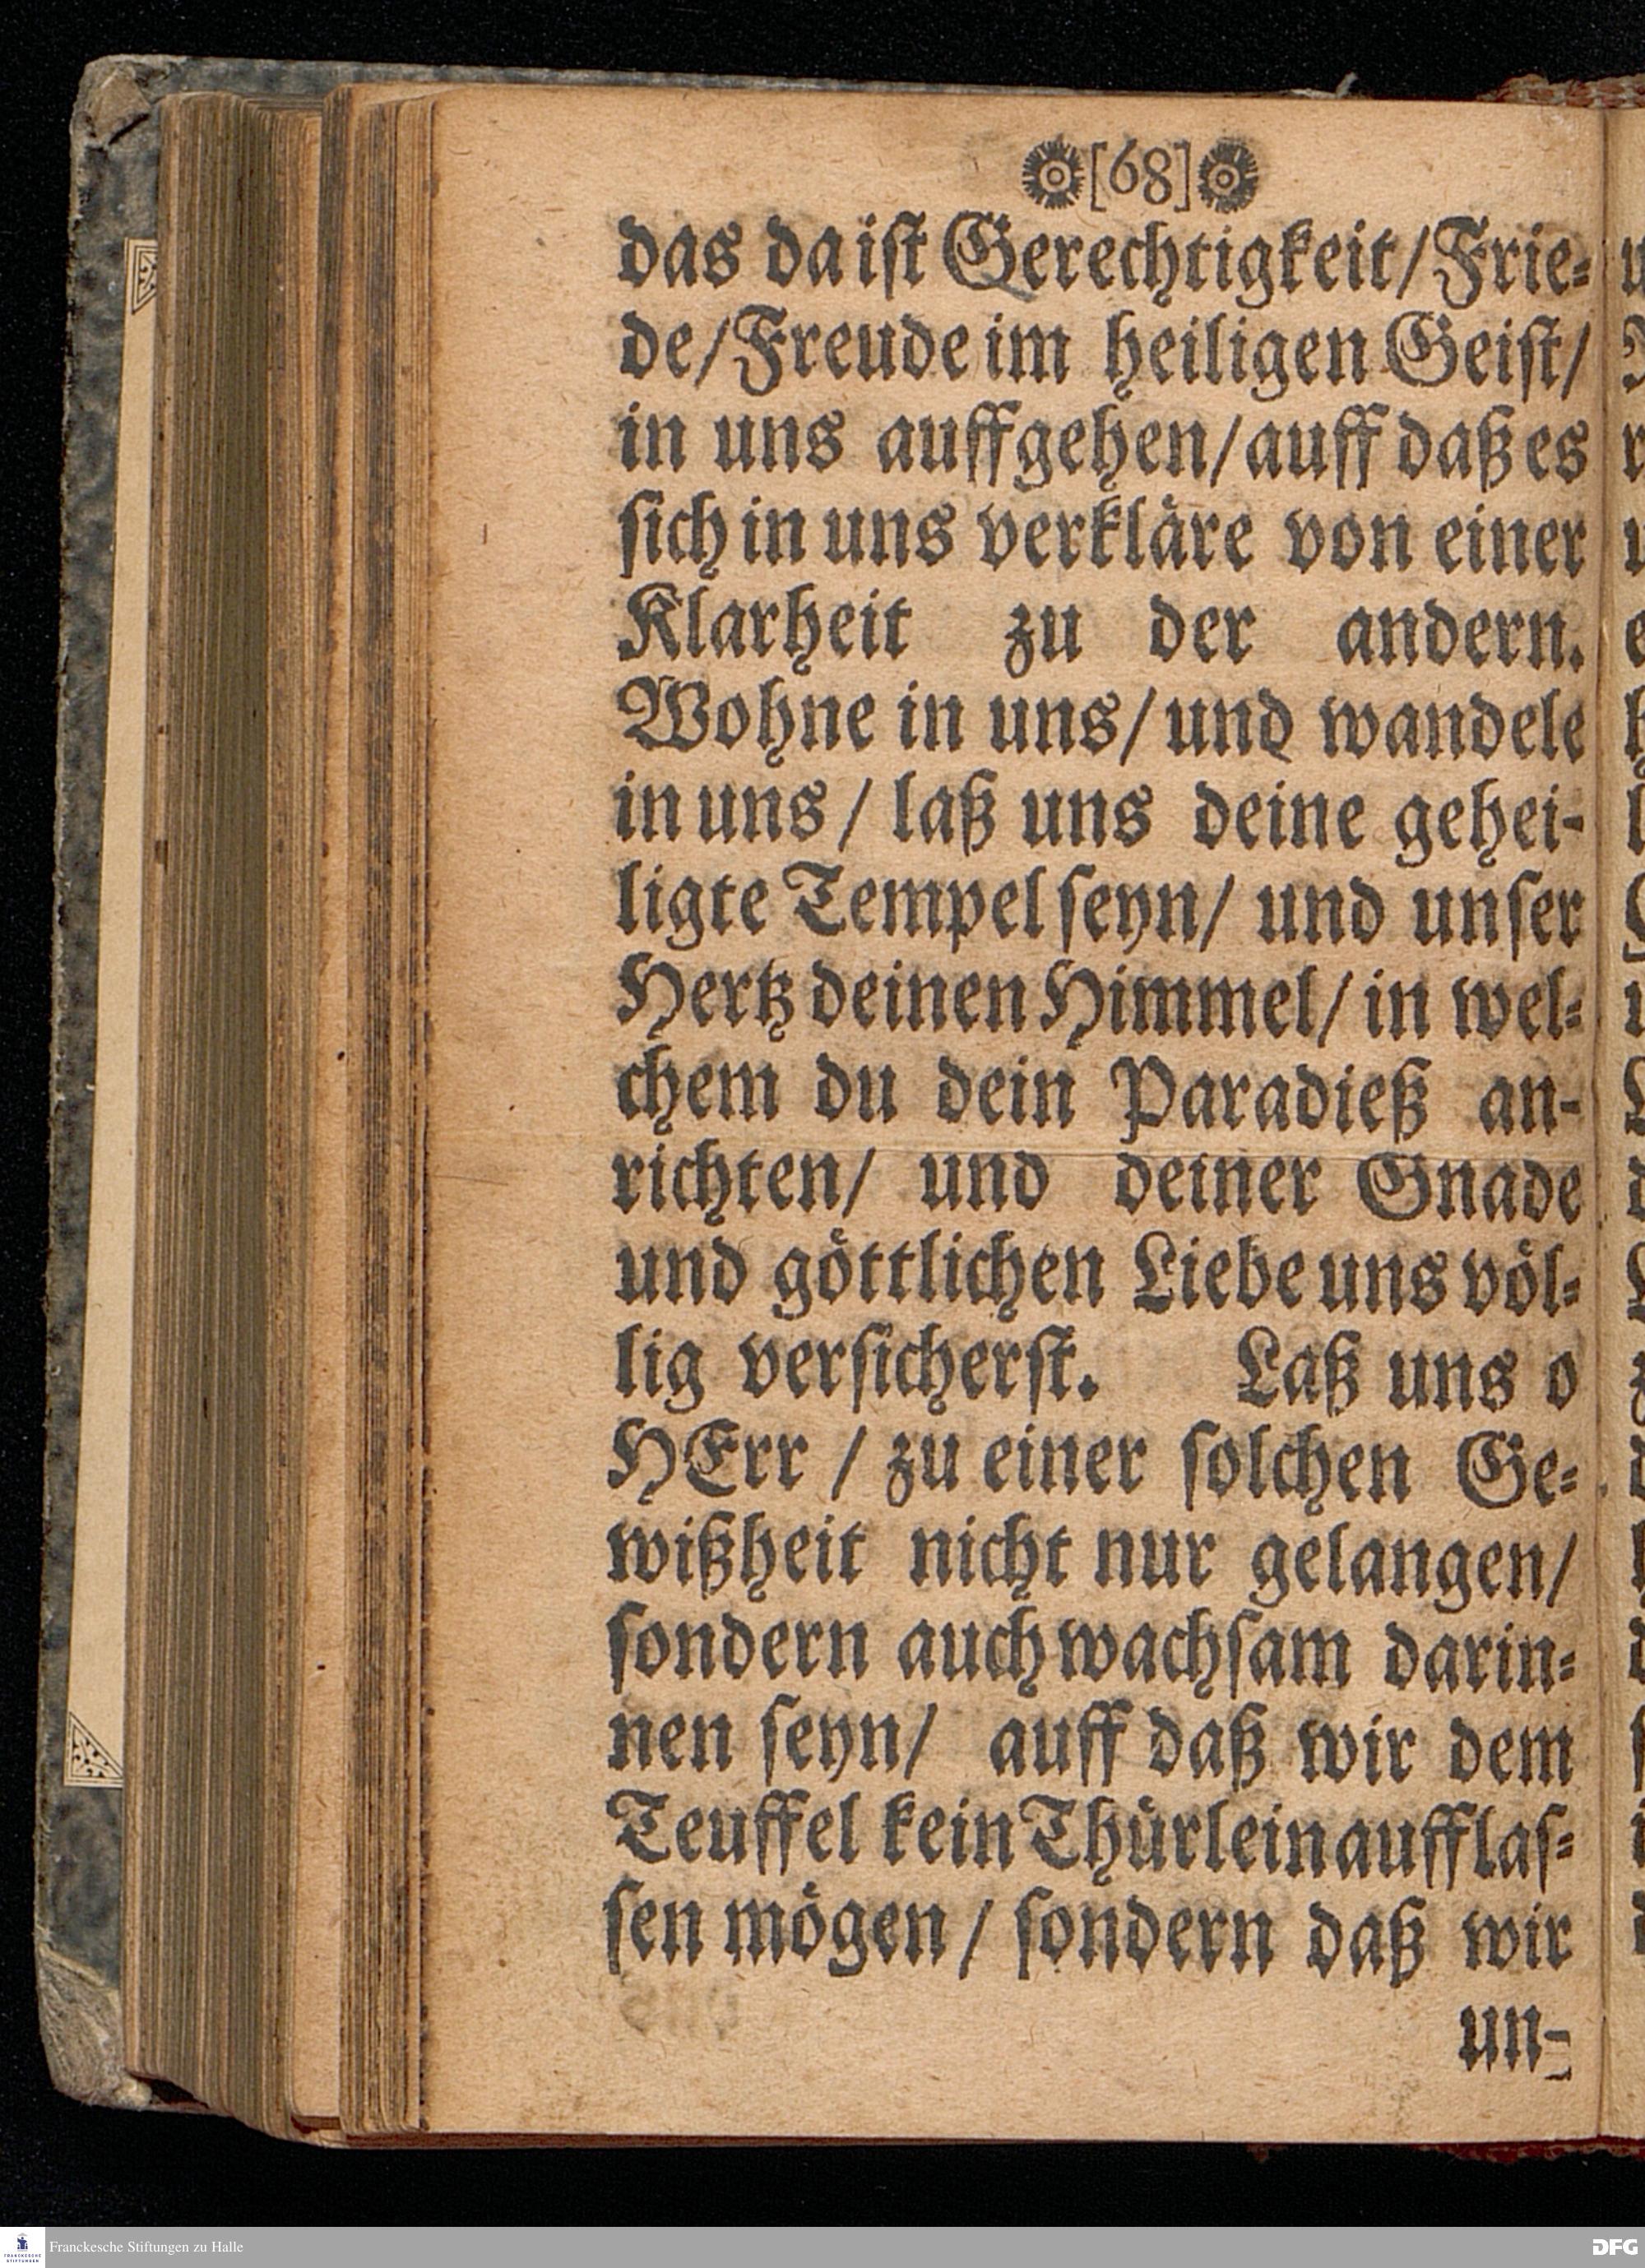 [68]
das da ist Gerechtigkeit/Frie-
de/Freude im heiligen Geist/
in uns auffgehen/auff daß es
sich in uns verkläre von einer
Klarheit zu der andern.
Wohne in uns/und wandele
in uns/ laß uns deine gehei-
ligte Tempel seyn/ und unser
Hertz deinen Himmel/ in wel-
chem du dein Paradieß an-
richten/ und deiner Gnade
und göttlichen Liebe uns völ-
lig versicherst. Laß uns o
HErr / zu einer solchen Ge-
wißheit nicht nur gelangen/
sondern auch wachsam darin-
nen seyn/ auff daß wir dem
Teuffel kein Thürlein aufflas-
sen mögen/ sondern daß wir
un-
Franckesche Stiftungen zu Halle
DFG